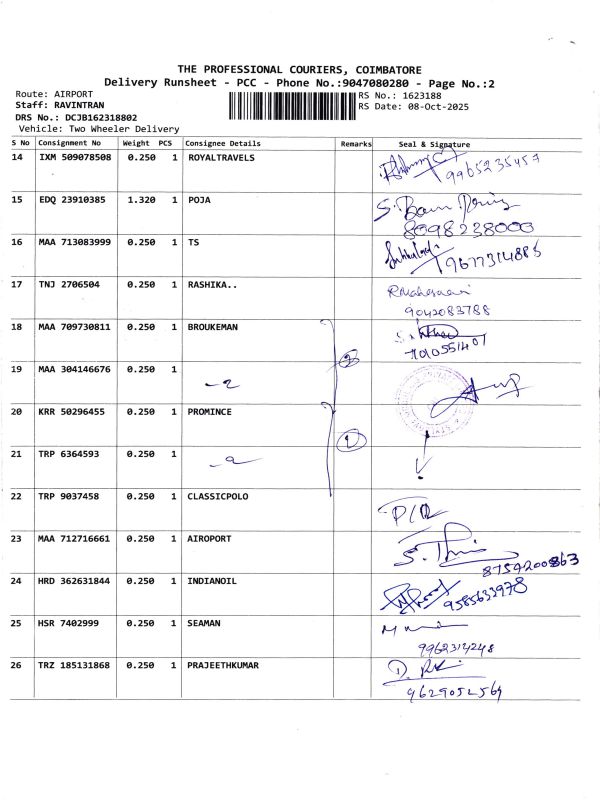 THE PROFESSIONAL COURIERS, COIMBATORE
Delivery Runsheet - PCC - Phone No.:9047080280 - Page No.:2
Route: AIRPORT
RS No.: 1623188
Staff: RAVINTRAN
RS Date: 08-Oct-2025
DRS No.: DCJB162318802
Vehicle: Two Wheeler Delivery
S No Consignment No Weight PCS Consignee Details Remarks Seal & Signature
14 IXM 509078508 0.250 1 ROYALTRAVELS
9965235457
15 EDQ 23910385 1.320 1 POJA
8098238000
16 MAA 713083999 0.250 1 TS
9677314885
17 TNJ 2706504 0.250 1 RASHIKA..
R Maheswari
9042083788
18 MAA 709730811 0.250 1 BROUKEMAN
7010551407
19 MAA 304146676 0.250 1
-2- 2
20 KRR 50296455 0.250 1 PROMINCE
1
21 TRP 6364593 0.250 1
22 TRP 9037458 0.250 1 CLASSICPOLO
23 MAA 712716661 0.250 1 AIROPORT
8754200863
24 HRD 362631844 0.250 1 INDIANOIL
9585633978
25 HSR 7402999 0.250 1 SEAMAN
9962314248
26 TRZ 185131868 0.250 1 PRAJEETHKUMAR
9629052569